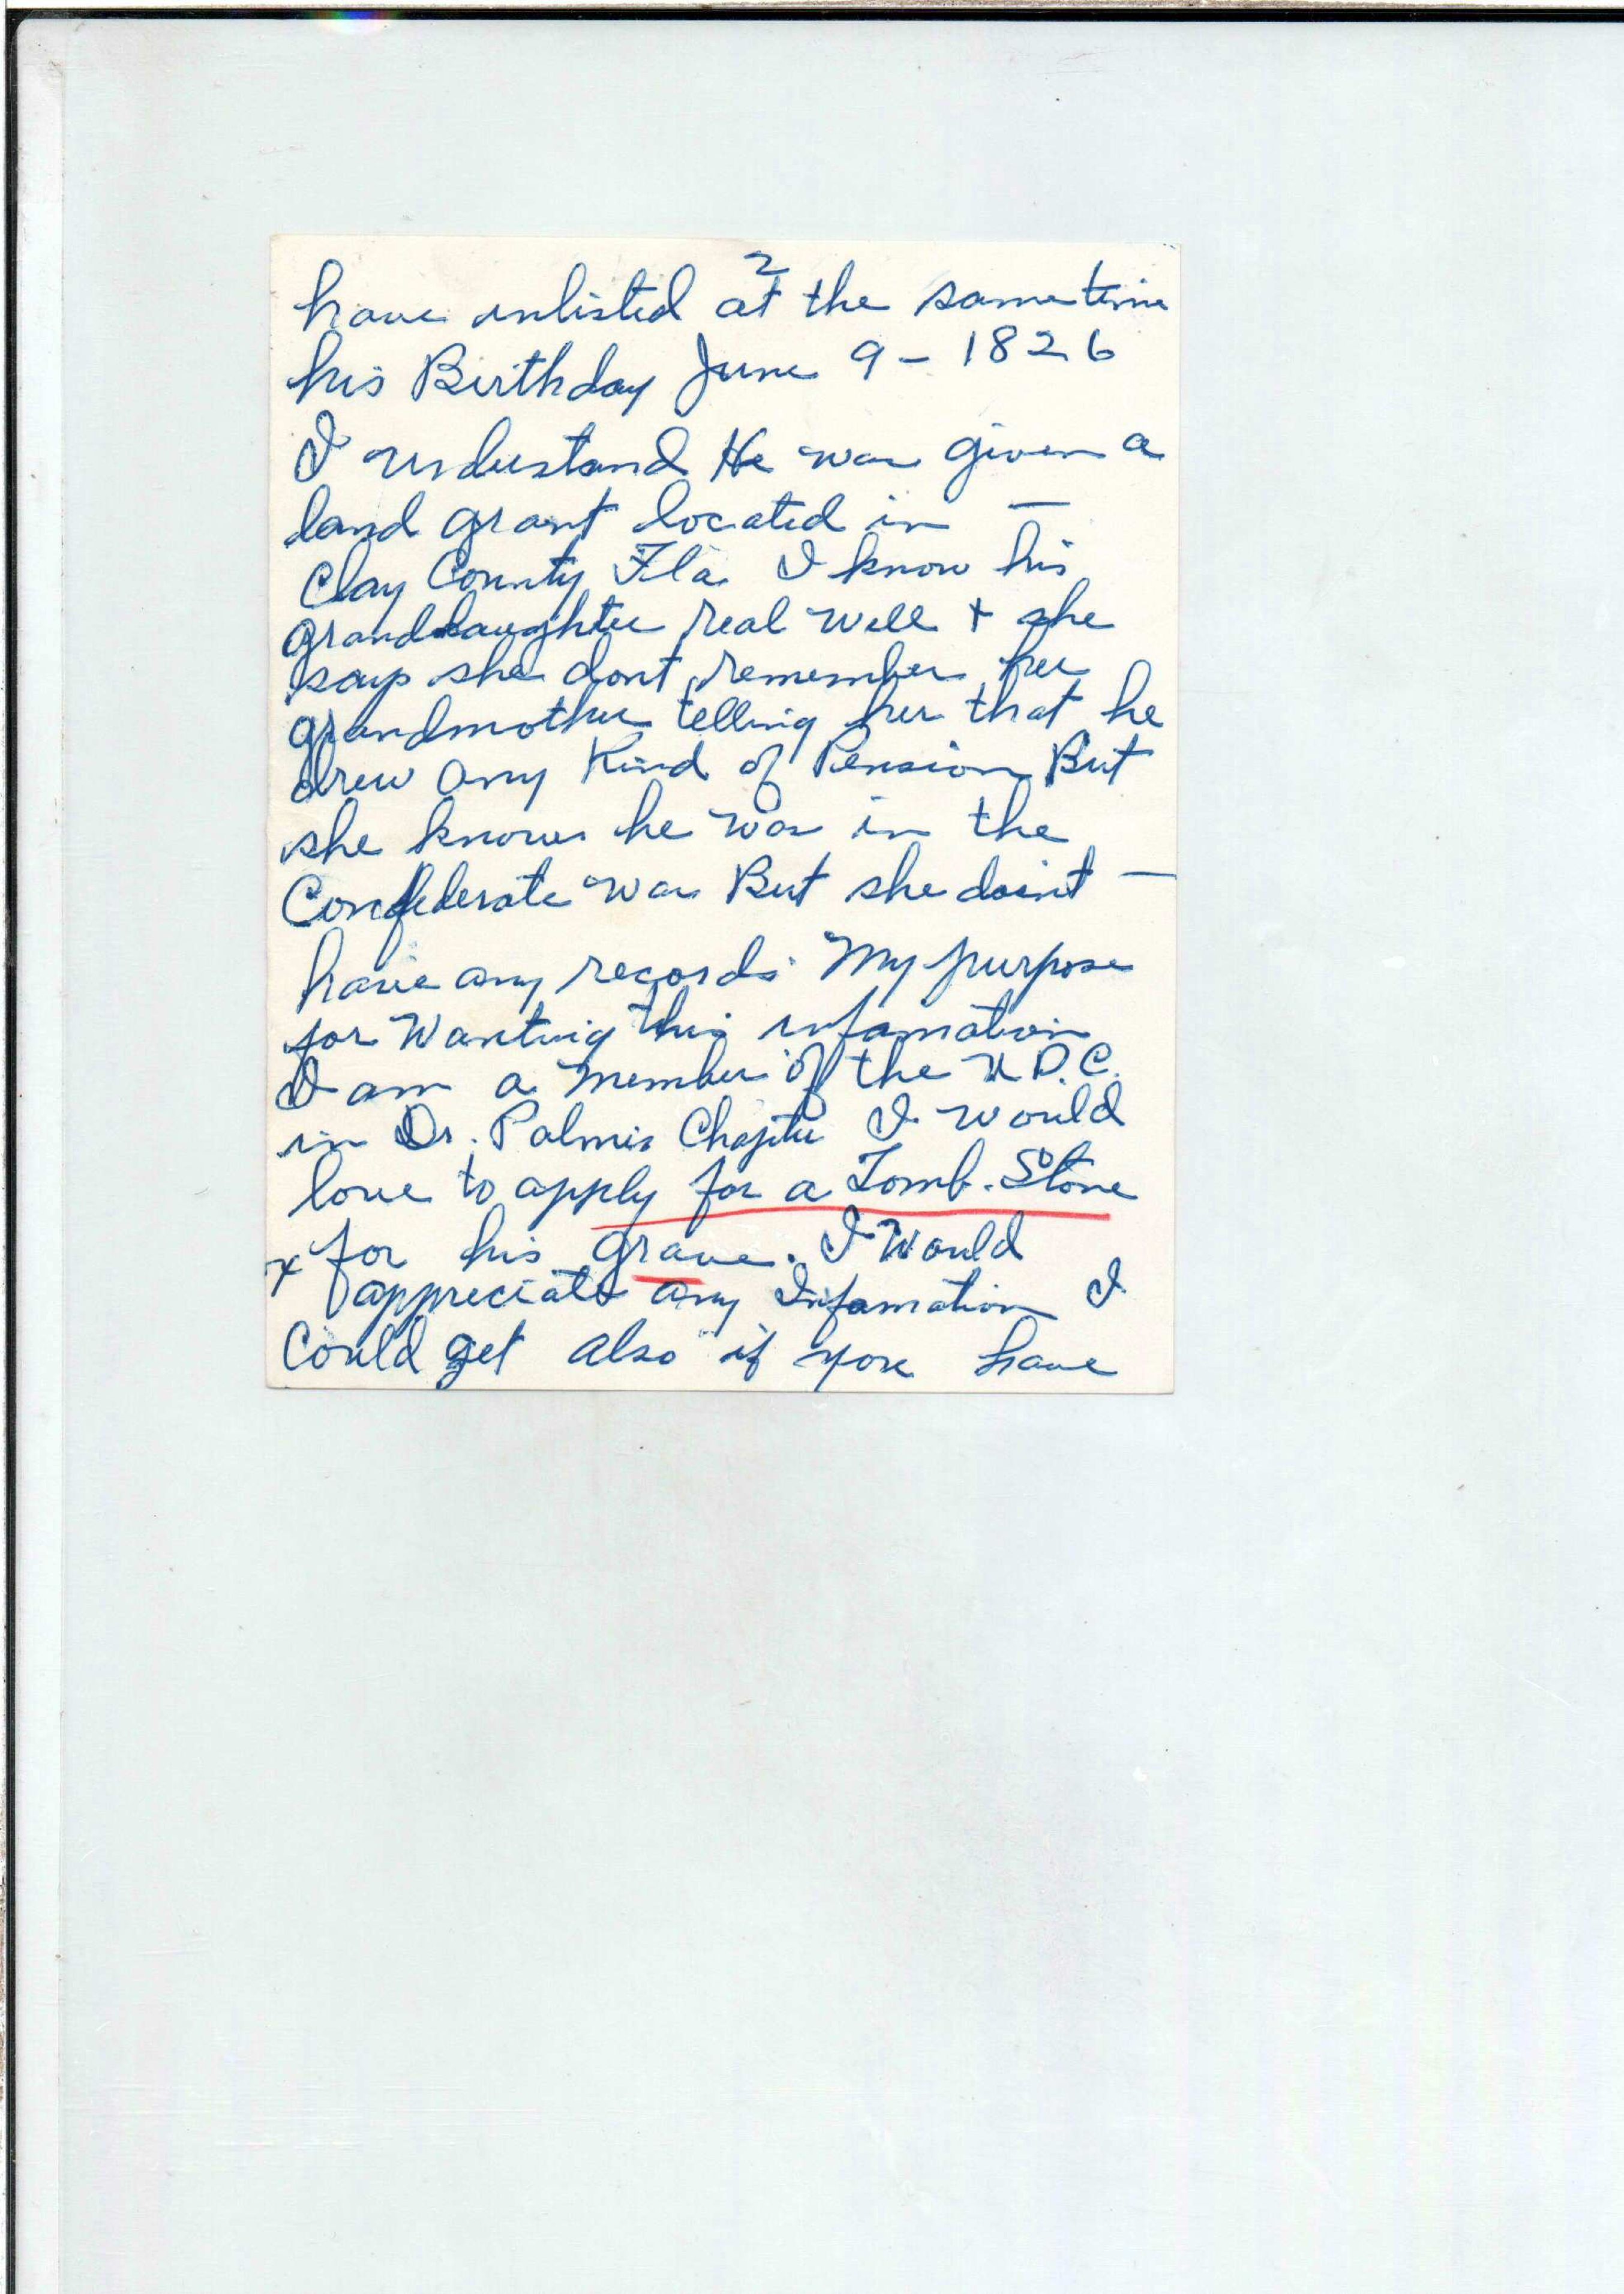 2
have inlisted at the same time
his Birthday June 9 - 1826
I understand He was given a
land grant located in —
Clay County Fla. I know his
granddaughter real well + she
says she dont remember her
grandmother telling her that he
drew any Kind of Pension But
she knows he was in the
Confederate war But she doint —
have any records. My purpose
for Wanting this infamation
I am a member of the U.D.C.
in Dr. Palmis Chapter I would
love to apply for a Tomb. Stone
x for his grave. I Would
appreciate any Infamation I
Could get also if you have